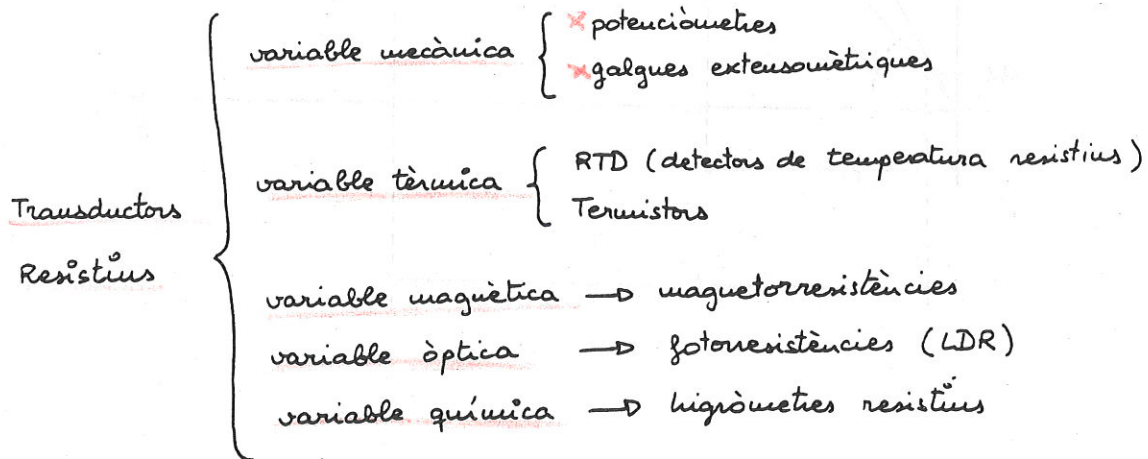 variable mecànica
potenciòmetres
galgues extensomètriques
variable tèrmica
RTD (detectors de temperatura resistius)
Termistors
Transductors
Resistius
variable magnètica → magnetorresistències
variable òptica → fotorresistències (LDR)
variable química → higròmetres resistius